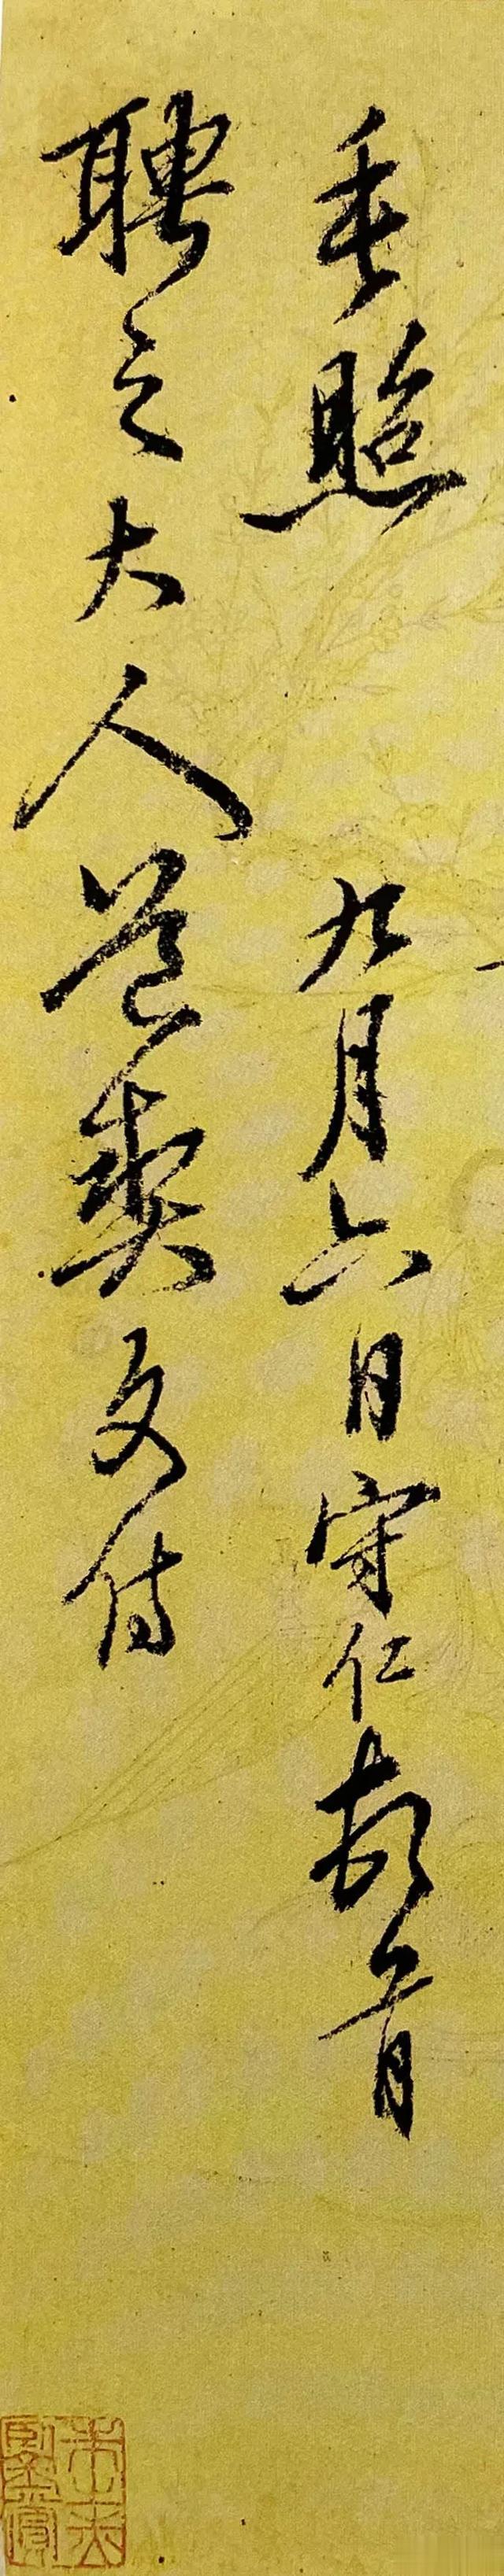 垂照 九月六日守仁頓首
聘之大人道契文侍